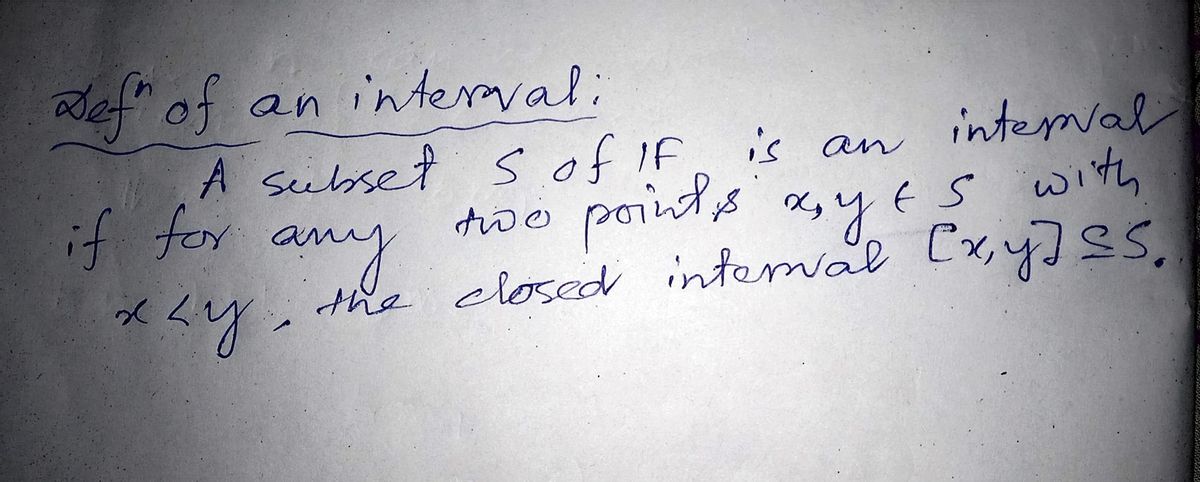 Defⁿ of an interval:
A subset S of IF is an interval
if for any two points x, y ∈ S with
x < y, the closed interval [x, y] ⊆ S.